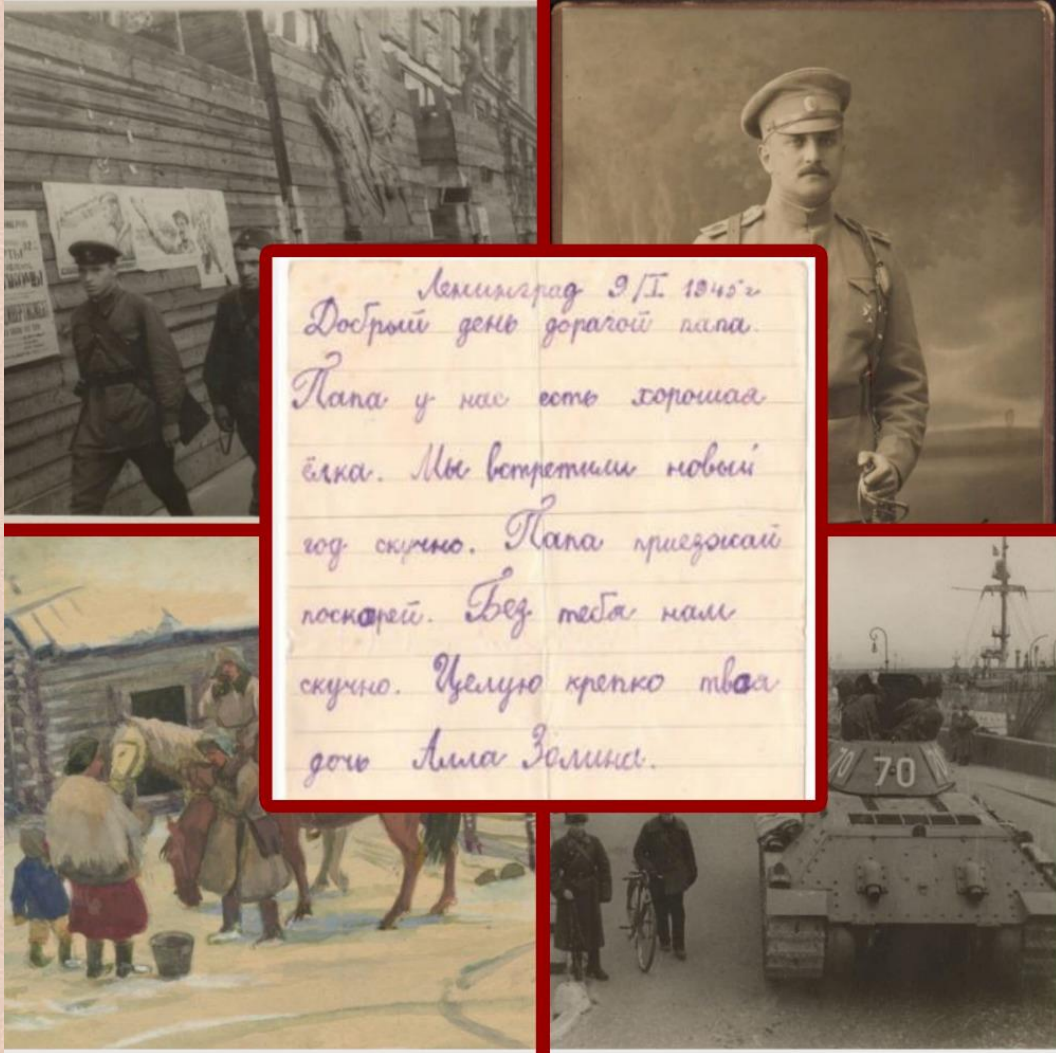 Ленинград 9/I 1945 г
Добрый день дорагой папа.
Папа у нас есть хорошая
ёлка. Мы встретили новый
год скучно. Папа приезжай
поскорей. Без тебя нам
скучно. Целую крепко твоя
дочь Алла Золина.
70
70